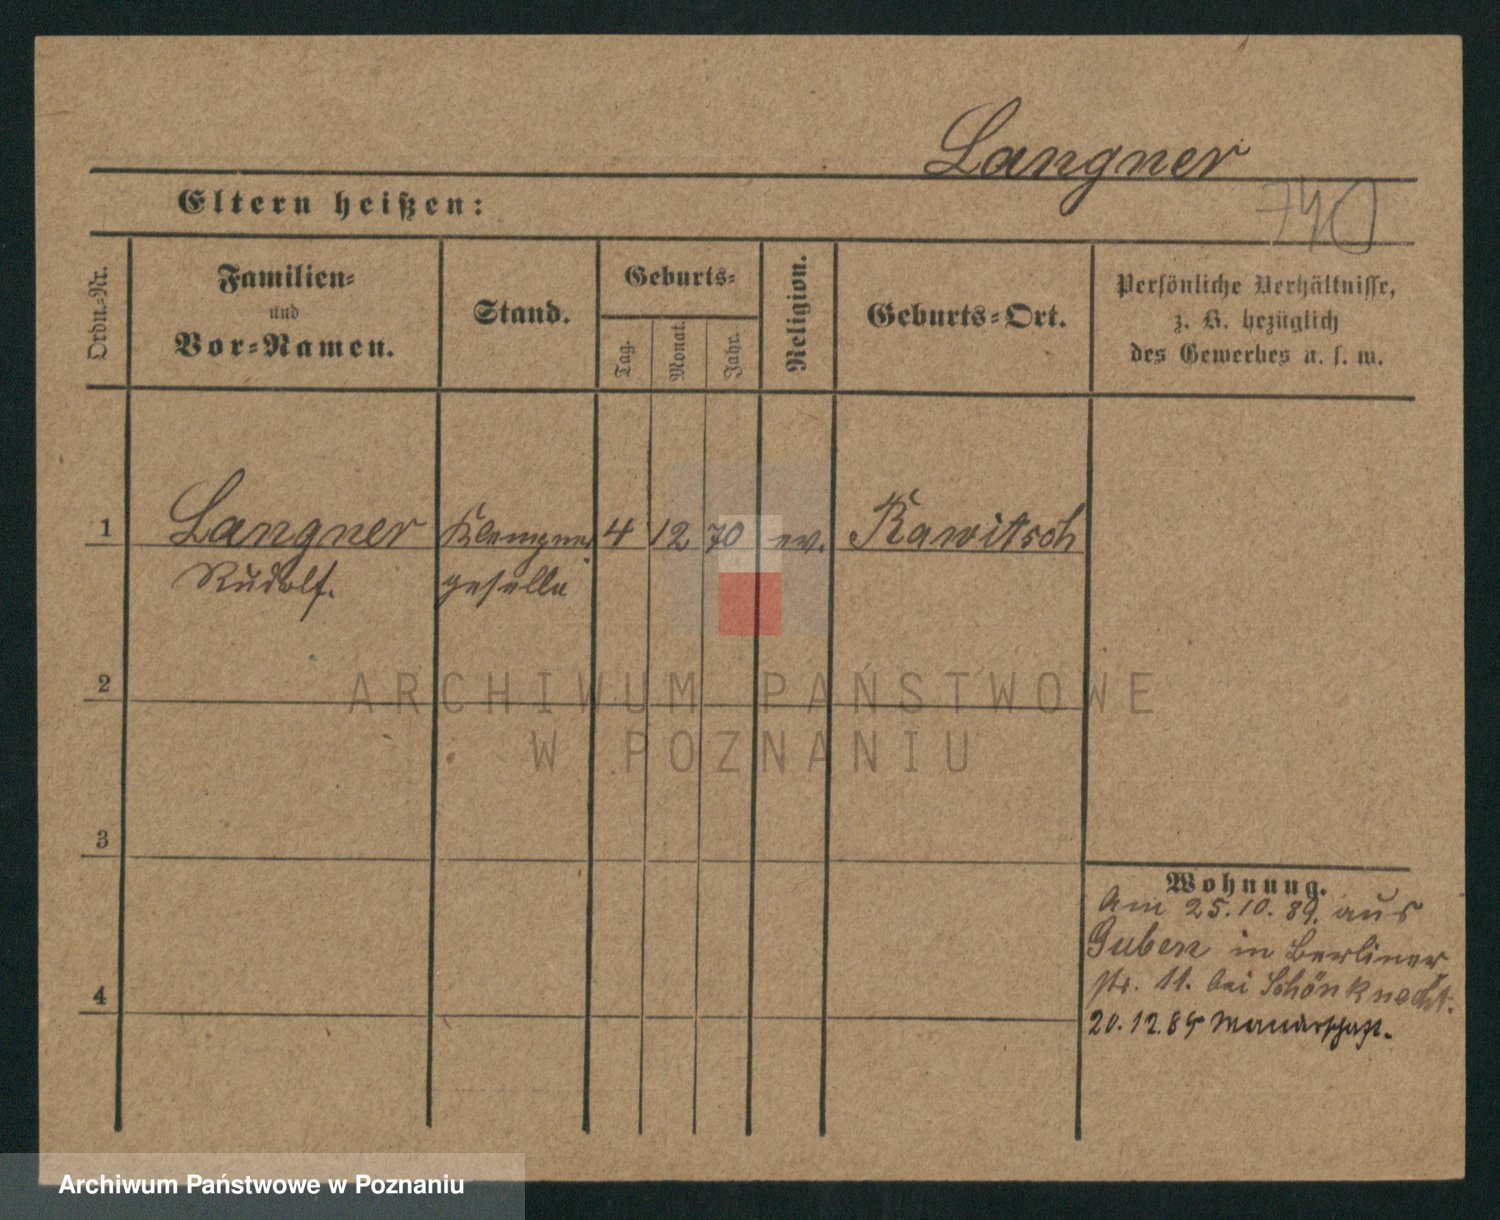 Langner
740
Eltern heißen:
Ordn.-Nr.
Familien-
und
Vor-Namen.
Stand.
Geburts-
Tag.
Monat.
Jahr.
Religion.
Geburts-Ort.
Persönliche Verhältnisse,
z. B. bezüglich
des Gewerbes u. s. w.
1 Langner Klempner 4 12 70 ev. Rawitsch
Rudolf. geselle
2
ARCHIWUM PAŃSTWOWE
W POZNANIU
3
Wohnung.
Am 25.10.89. aus
Guben in Berliner
str. 11. bei Schönknecht.
4
20.12.89 Wanderschaft.
Archiwum Państwowe w Poznaniu